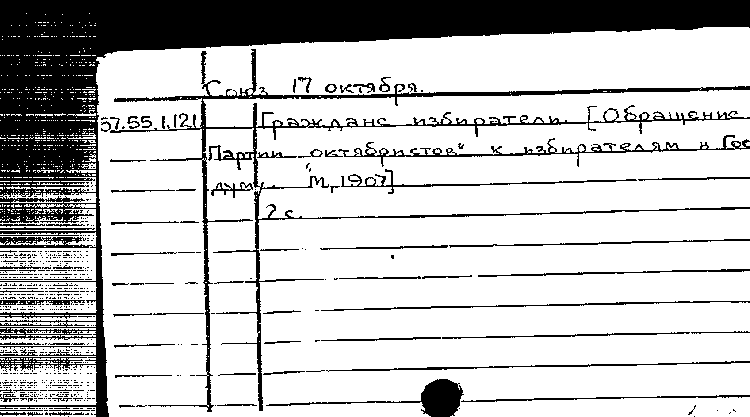 Союз 17 октября.
57.55.1.121 Граждане избиратели. [Обращение
Партии „октябристов“ к избирателям в Гос
думу. М, 1907].
2 с.